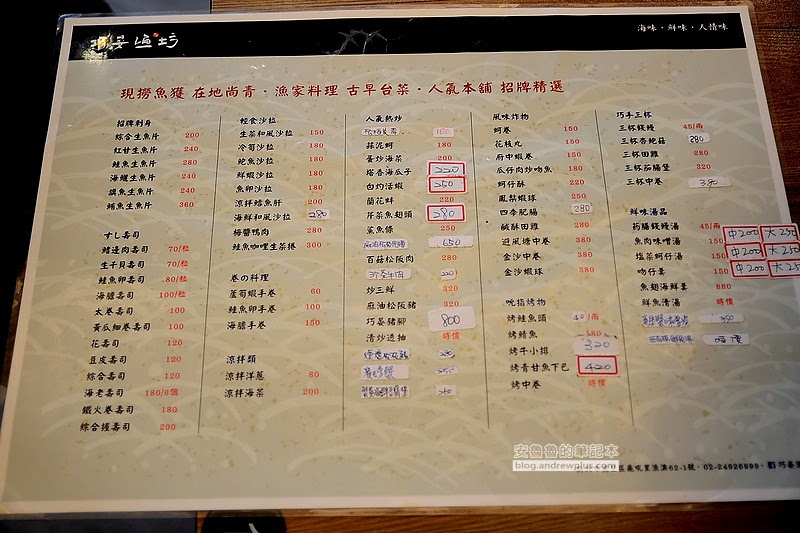 巧晏漁坊
海味·鮮味·人情味
現撈魚獲 在地尚青·漁家料理 古早台菜·人氣本舖 招牌精選
招牌刺身
綜合生魚片 200
紅甘生魚片 240
鮭魚生魚片 280
海鱺生魚片 240
旗魚生魚片 240
鮪魚生魚片 360
すし壽司
鰭邊肉壽司 70/粒
生干貝壽司 70/粒
鮭魚卵壽司 80/粒
海膽壽司 100/粒
太卷壽司 100
黃瓜細卷壽司 100
花壽司 120
豆皮壽司 120
綜合壽司 120
海老壽司 180/6個
鐵火卷壽司 180
綜合握壽司 200
輕食沙拉
生菜和風沙拉 150
冷筍沙拉 180
鮑魚沙拉 180
鮮蝦沙拉 180
魚卵沙拉 180
涼拌鱈魚肝 200
海鮮和風沙拉 280
梅醬鴨肉 280
鮭魚咖哩生菜捲 300
卷の料理
蘆筍蝦手卷 60
鮭魚卵手卷 100
海膽手卷 150
涼拌類
涼拌洋蔥 80
涼拌海菜 200
人氣熱炒
180
蒜泥蚵 180
蛋炒海菜 200
塔香海瓜子 220
白灼活蝦 250
蘭花蚌 220
芹菜魚翅頭 280
鯊魚條 250
650
百菇松阪肉 280
220
炒三鮮 320
麻油松阪豬 320
巧晏豬腳 800
清炒透抽 時價
風味炸物
蚵卷 150
花枝丸 150
府中蝦卷 150
瓜仔肉炒吻魚 180
蚵仔酥 220
鳳梨蝦球 250
四季肥腸 280
鹹酥田雞 280
避風塘中卷 380
金沙中卷 380
金沙蝦球 380
吮指烤物
烤鮭魚頭 40/兩
烤鯖魚
烤牛小排 320
烤青甘魚下巴 420
烤中卷 時價
巧手三杯
三杯錢鰻 45/兩
三杯杏鮑菇 280
三杯田雞 280
三杯茄腸堡 320
三杯中卷 380
鮮味湯品
藥膳錢鰻湯 45/兩
魚肉味噌湯 150 中200 大250
塩菜蚵仔湯 150 中200 大250
吻仔羹 150 中200 大250
魚翅海鮮羹 880
鮮魚清湯 時價
350
時價
安魯魯的筆記本
blog.andrewplus.com
62-1號·02-24926999·